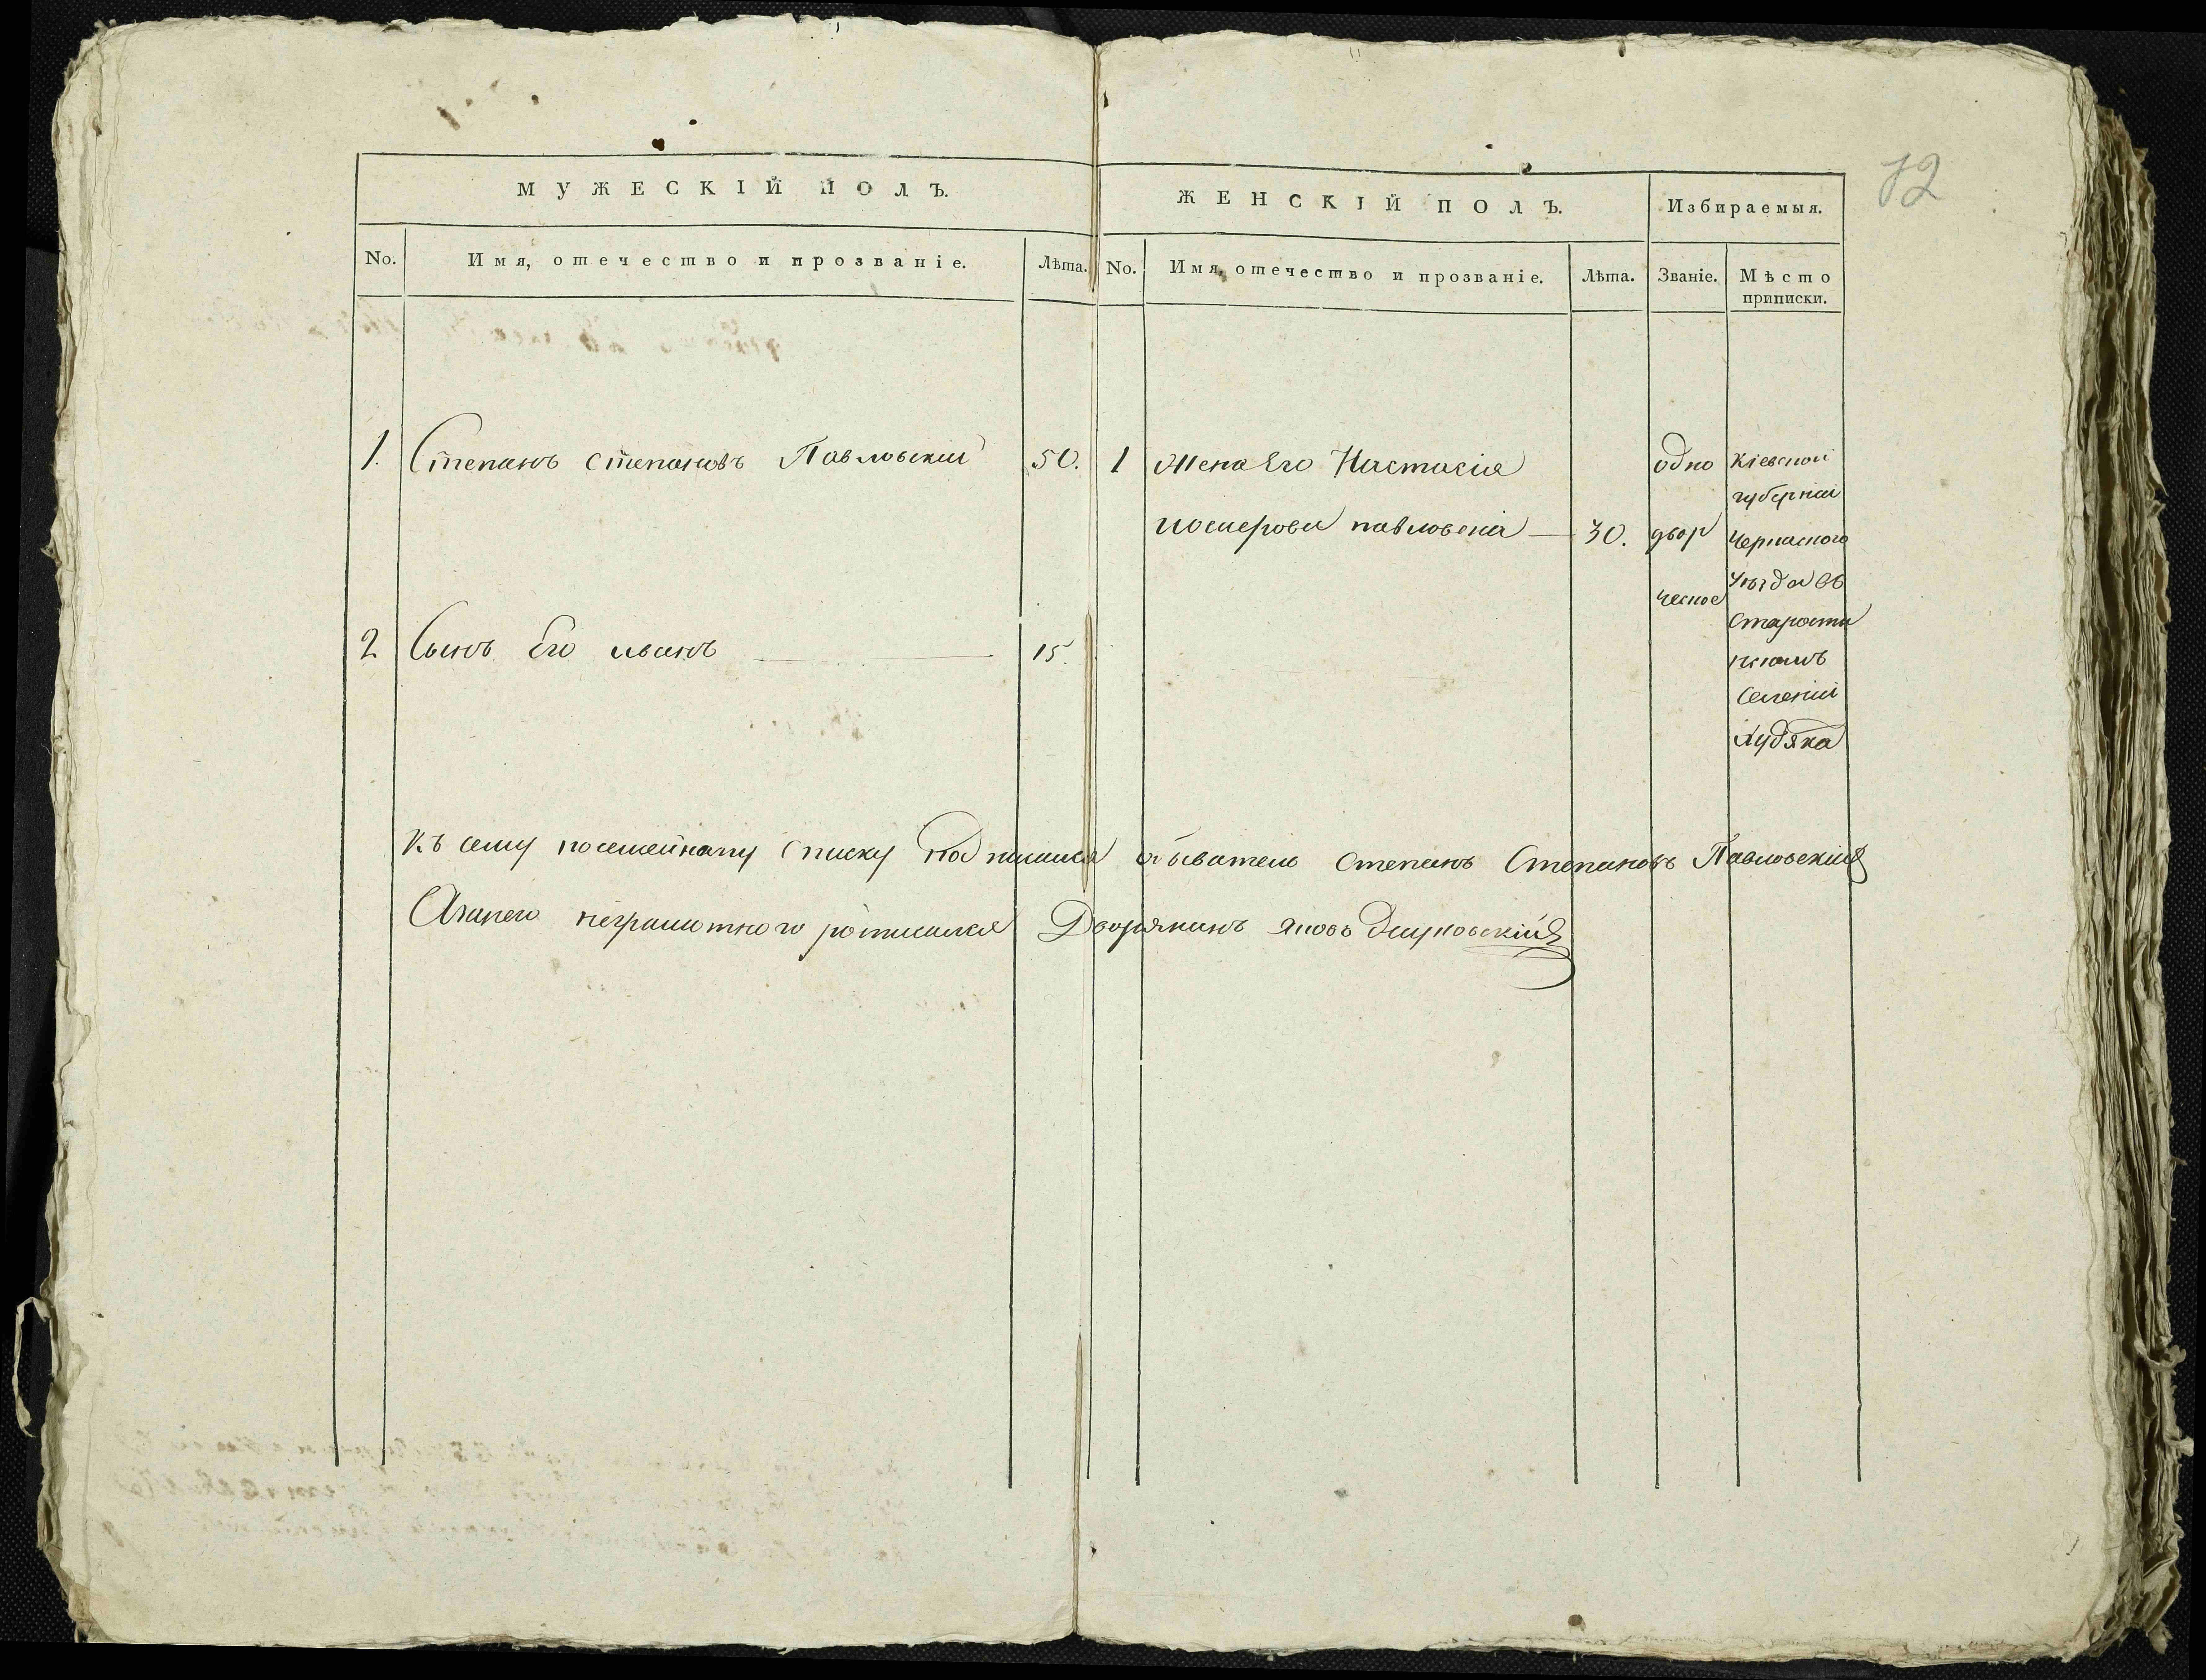 72
МУЖЕСКІЙ ПОЛЪ.
ЖЕНСКІЙ ПОЛЪ.
Избираемыя.
No.
Имя, отечество и прозваніе.
Лѣта.
No.
Имя, отечество и прозваніе.
Лѣта.
Званіе.
Мѣсто
приписки.
1. Степанъ Степановъ Павловскій 50.
1 Жена Его Настасія
павловскіа — 30.
одно
двор
ческое
Кіевской
губерніи
Черкаского
уѣзда въ
старости
нскомъ
Селеніи
Худяка
2 Сынъ Его иванъ 15.
Къ сему посемейному списку подписался обыватель Степанъ Степановъ Павловскій
Азанего неграмотного росписался Дворянинъ Яковъ